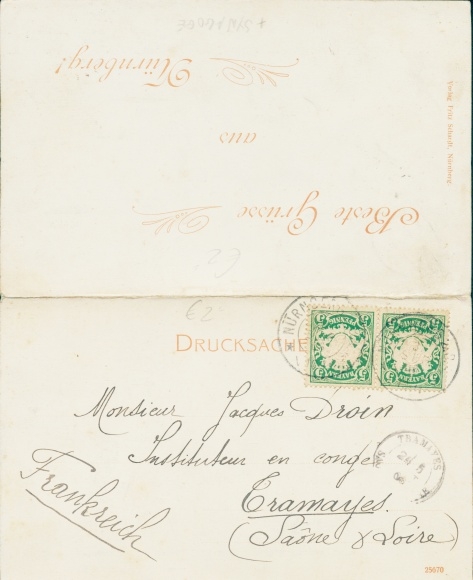 Beste Grüsse
aus
Nürnberg!
Verlag Fritz Schardt, Nürnberg.
DRUCKSACHE
NÜRNBERG
BAYERN
5
5
BAYERN
5
5
Monsieur Jacques Droin
Instituteur en congé
Tramayes.
(Saône & Loire)
Frankreich
TRAMAYES
24
5
25670